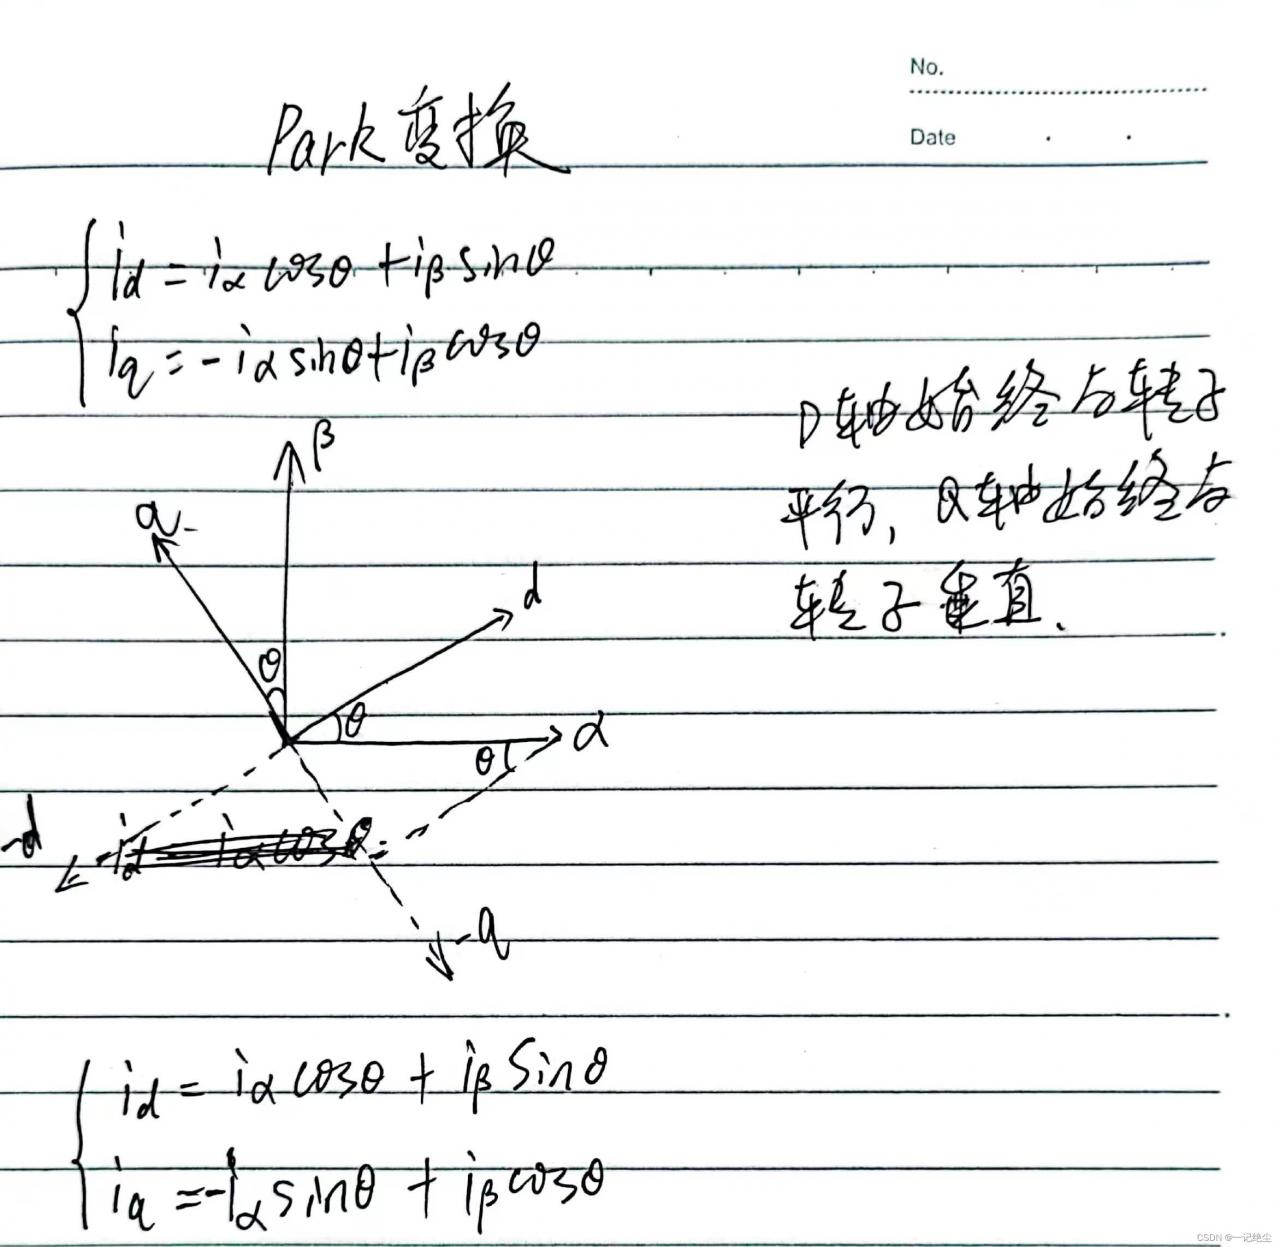 No.
Date
Park变换
id = iα cosθ + iβ sinθ
iq = -iα sinθ + iβ cosθ
D轴始终与转子
平行, Q轴始终与
转子垂直.
β
q
d
θ
θ
α
θ
-d
id iα cosθ
-q
id = iα cosθ + iβ Sinθ
iq = -iα sinθ + iβ cosθ
CSDN @一记绝尘